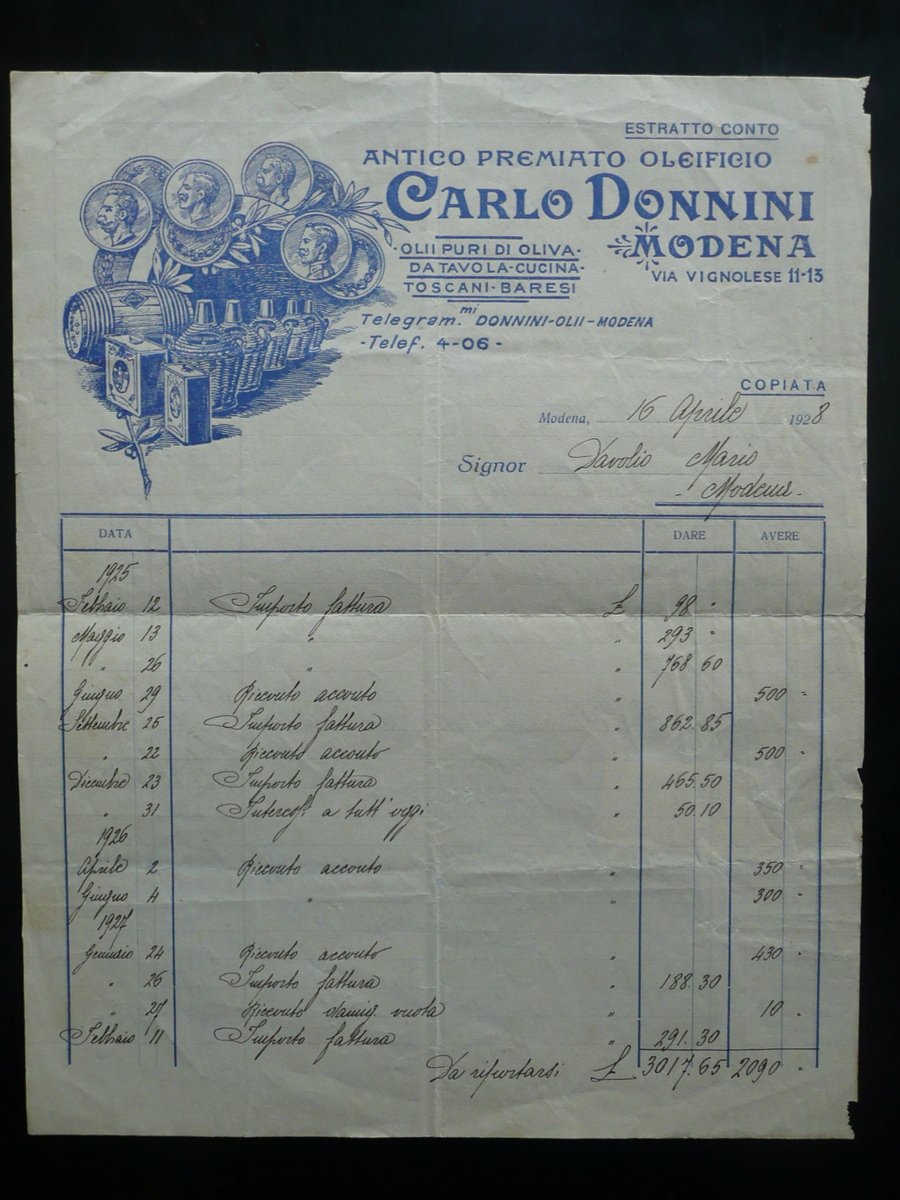 ESTRATTO CONTO
ANTICO PREMIATO OLEIFICIO
CARLO DONNINI
MODENA
VIA VIGNOLESE 11-13
·OLII PURI DI OLIVA·
DA TAVOLA-CUCINA-
TOSCANI-BARESI
Telegram.mi DONNINI-OLII-MODENA
-Telef. 4-06-
COPIATA
Modena, 16 Aprile 1928
Signor Davolio Mario
- Modena -
DATA DARE AVERE
1925
Febbraio 12 Importo fattura £ 98 "
Maggio 13 " " 293 "
" 26 " " 768.60
Giugno 29 Ricevuto acconto " 500 "
Settembre 25 Importo fattura " 862.85
" 22 Ricevuto acconto " 500 "
Dicembre 23 Importo fattura " 465.50
" 31 Interessi a tutt'oggi " 50.10
1926
Aprile 2 Ricevuto acconto " 350 "
Giugno 4 " " 300 "
1927
Gennaio 24 Ricevuto acconto " 430 "
" 26 Importo fattura " 188.30
" 27 Ricevuto damig. vuota " 10 "
Febbraio 11 Importo fattura " 291.30
Da riportarsi £ 3017.65 2090 "